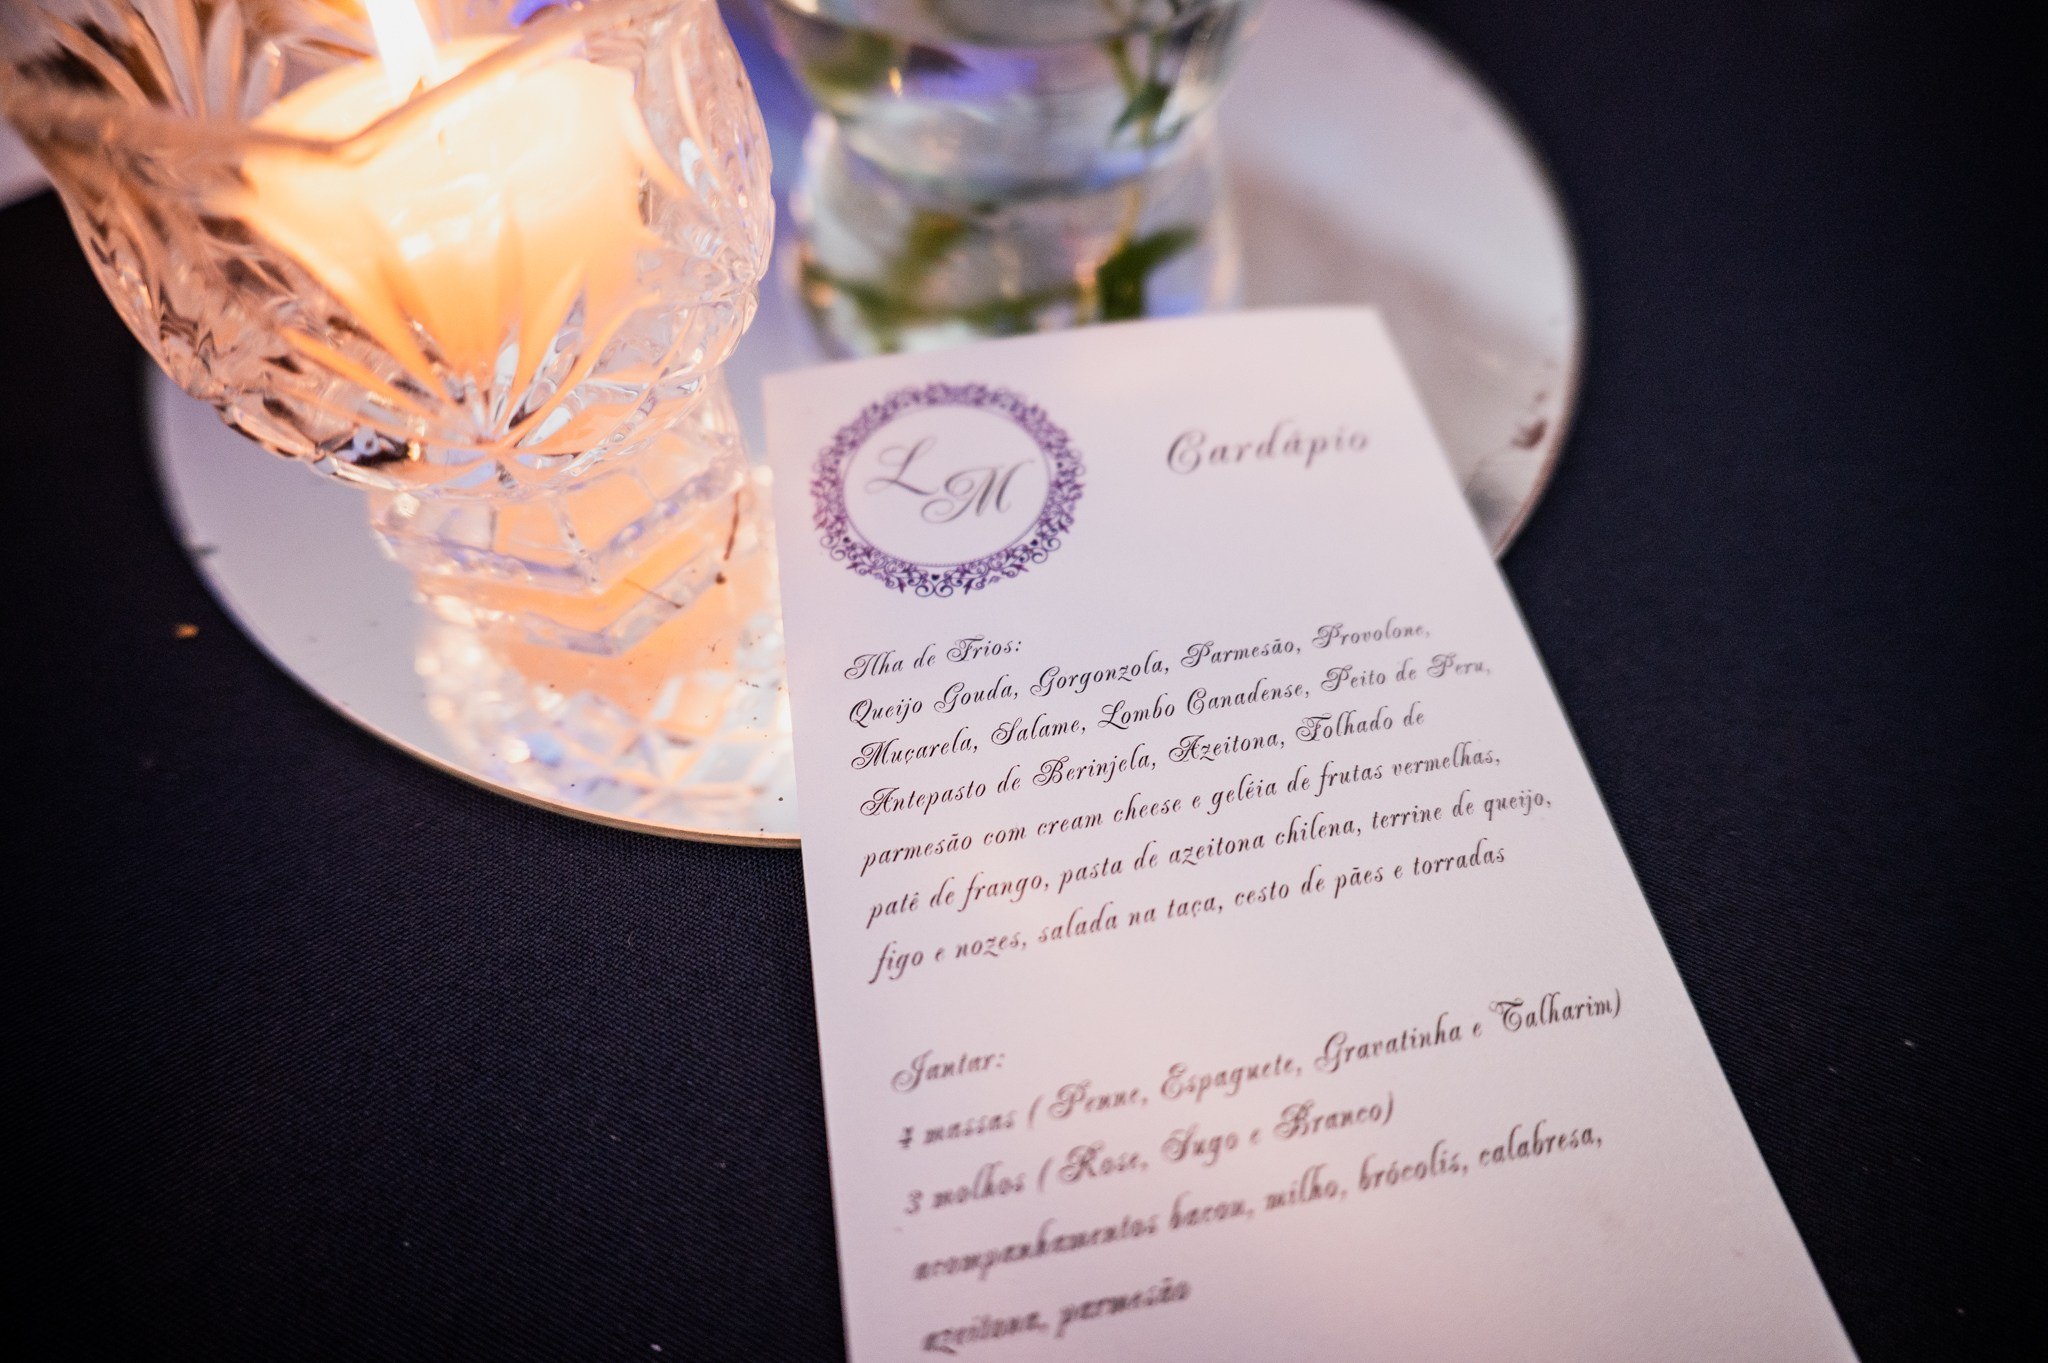 L M
Cardápio
Ilha de Frios:
Queijo Gouda, Gorgonzola, Parmesão, Provolone,
Muçarela, Salame, Lombo Canadense, Peito de Peru,
Antepasto de Berinjela, Azeitona, Folhado de
parmesão com cream cheese e geléia de frutas vermelhas,
patê de frango, pasta de azeitona chilena, terrine de queijo,
figo e nozes, salada na taça, cesto de pães e torradas
Jantar:
4 massas ( Penne, Espaguete, Gravatinha e Talharim)
3 molhos ( Rose, Sugo e Branco)
acompanhamentos bacon, milho, brócolis, calabresa,
azeitona, parmesão